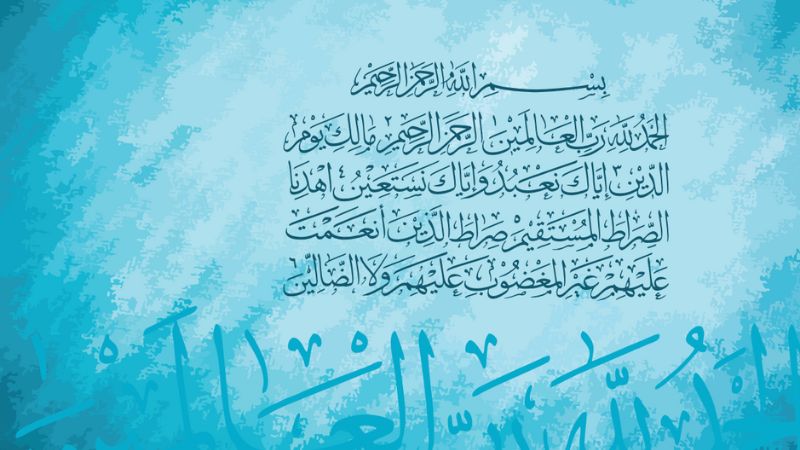 بِسْمِ اللَّهِ الرَّحْمَنِ الرَّحِيْمِ
الْحَمْدُ لِلَّهِ رَبِّ الْعَالَمِيْنَ ١ الرَّحْمَنِ الرَّحِيْمِ ٢ مَالِكِ يَوْمِ
الدِّيْنِ ٣ إِيَّاكَ نَعْبُدُ وَإِيَّاكَ نَسْتَعِيْنُ ٤ اهْدِنَا
الصِّرَاطَ الْمُسْتَقِيْمَ صِرَاطَ الَّذِيْنَ أَنْعَمْتَ
عَلَيْهِمْ غَيْرِ الْمَغْضُوْبِ عَلَيْهِمْ وَلَا الضَّالِّيْنَ ٦
الْحَمْدُ لِلَّهِ رَبِّ الْعَالَمِيْنَ